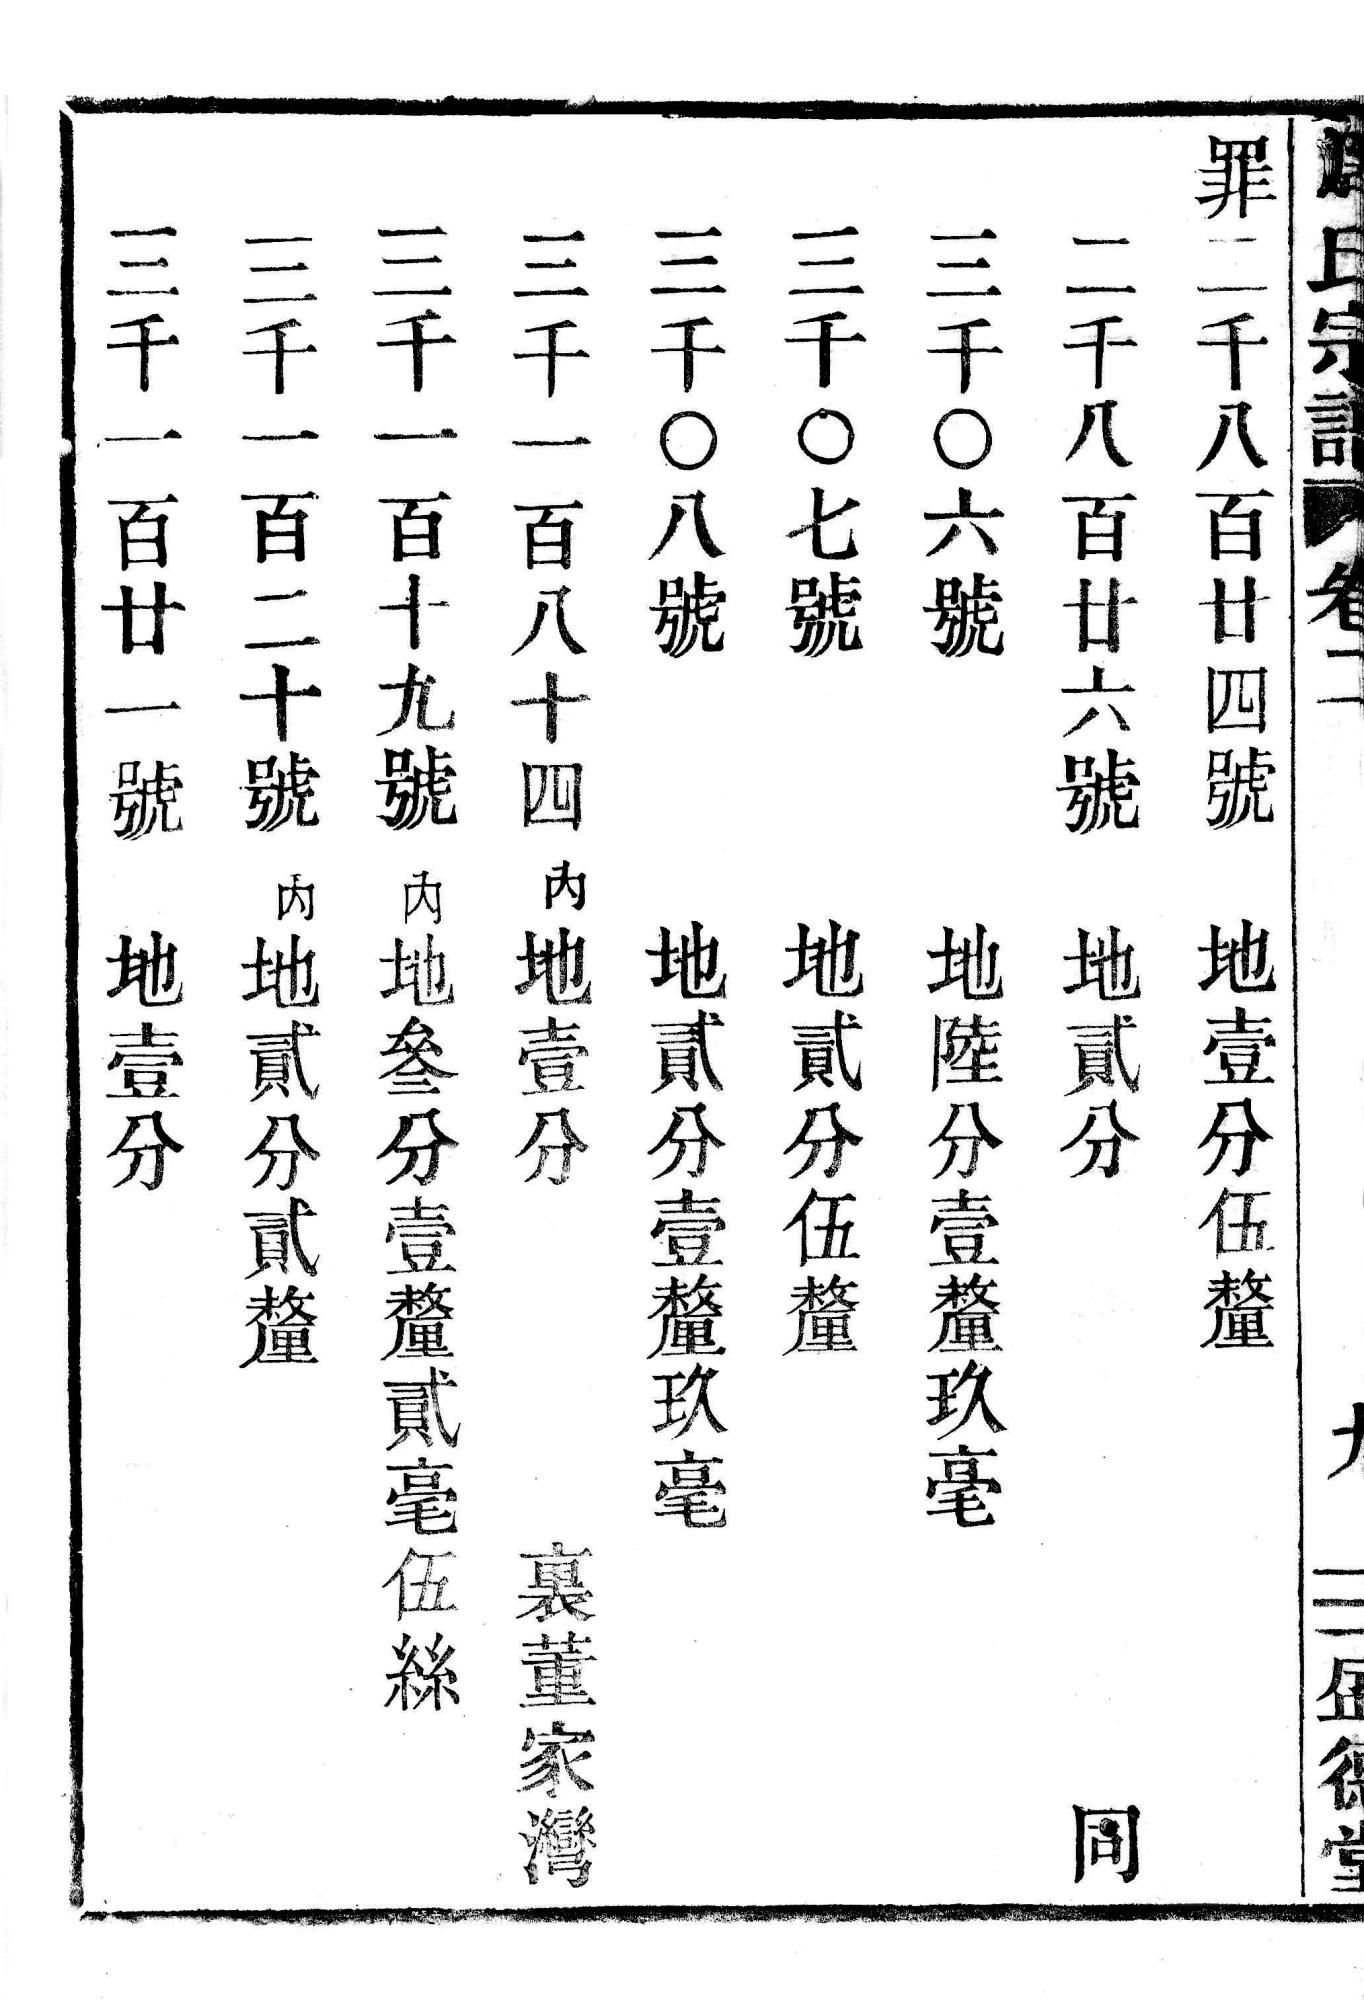 氏宗譜 卷二 九 盛德堂
罪二千八百廿四號 地壹分伍釐
二千八百廿六號 地貳分 同
三千〇六號 地陸分壹釐玖毫
三千〇七號 地貳分伍釐
三千〇八號 地貳分壹釐玖毫
三千一百八十四 內地壹分 裏董家灣
三千一百十九號 內地叄分壹釐貳毫伍絲
三千一百二十號 內地貳分貳釐
三千一百廿一號 地壹分